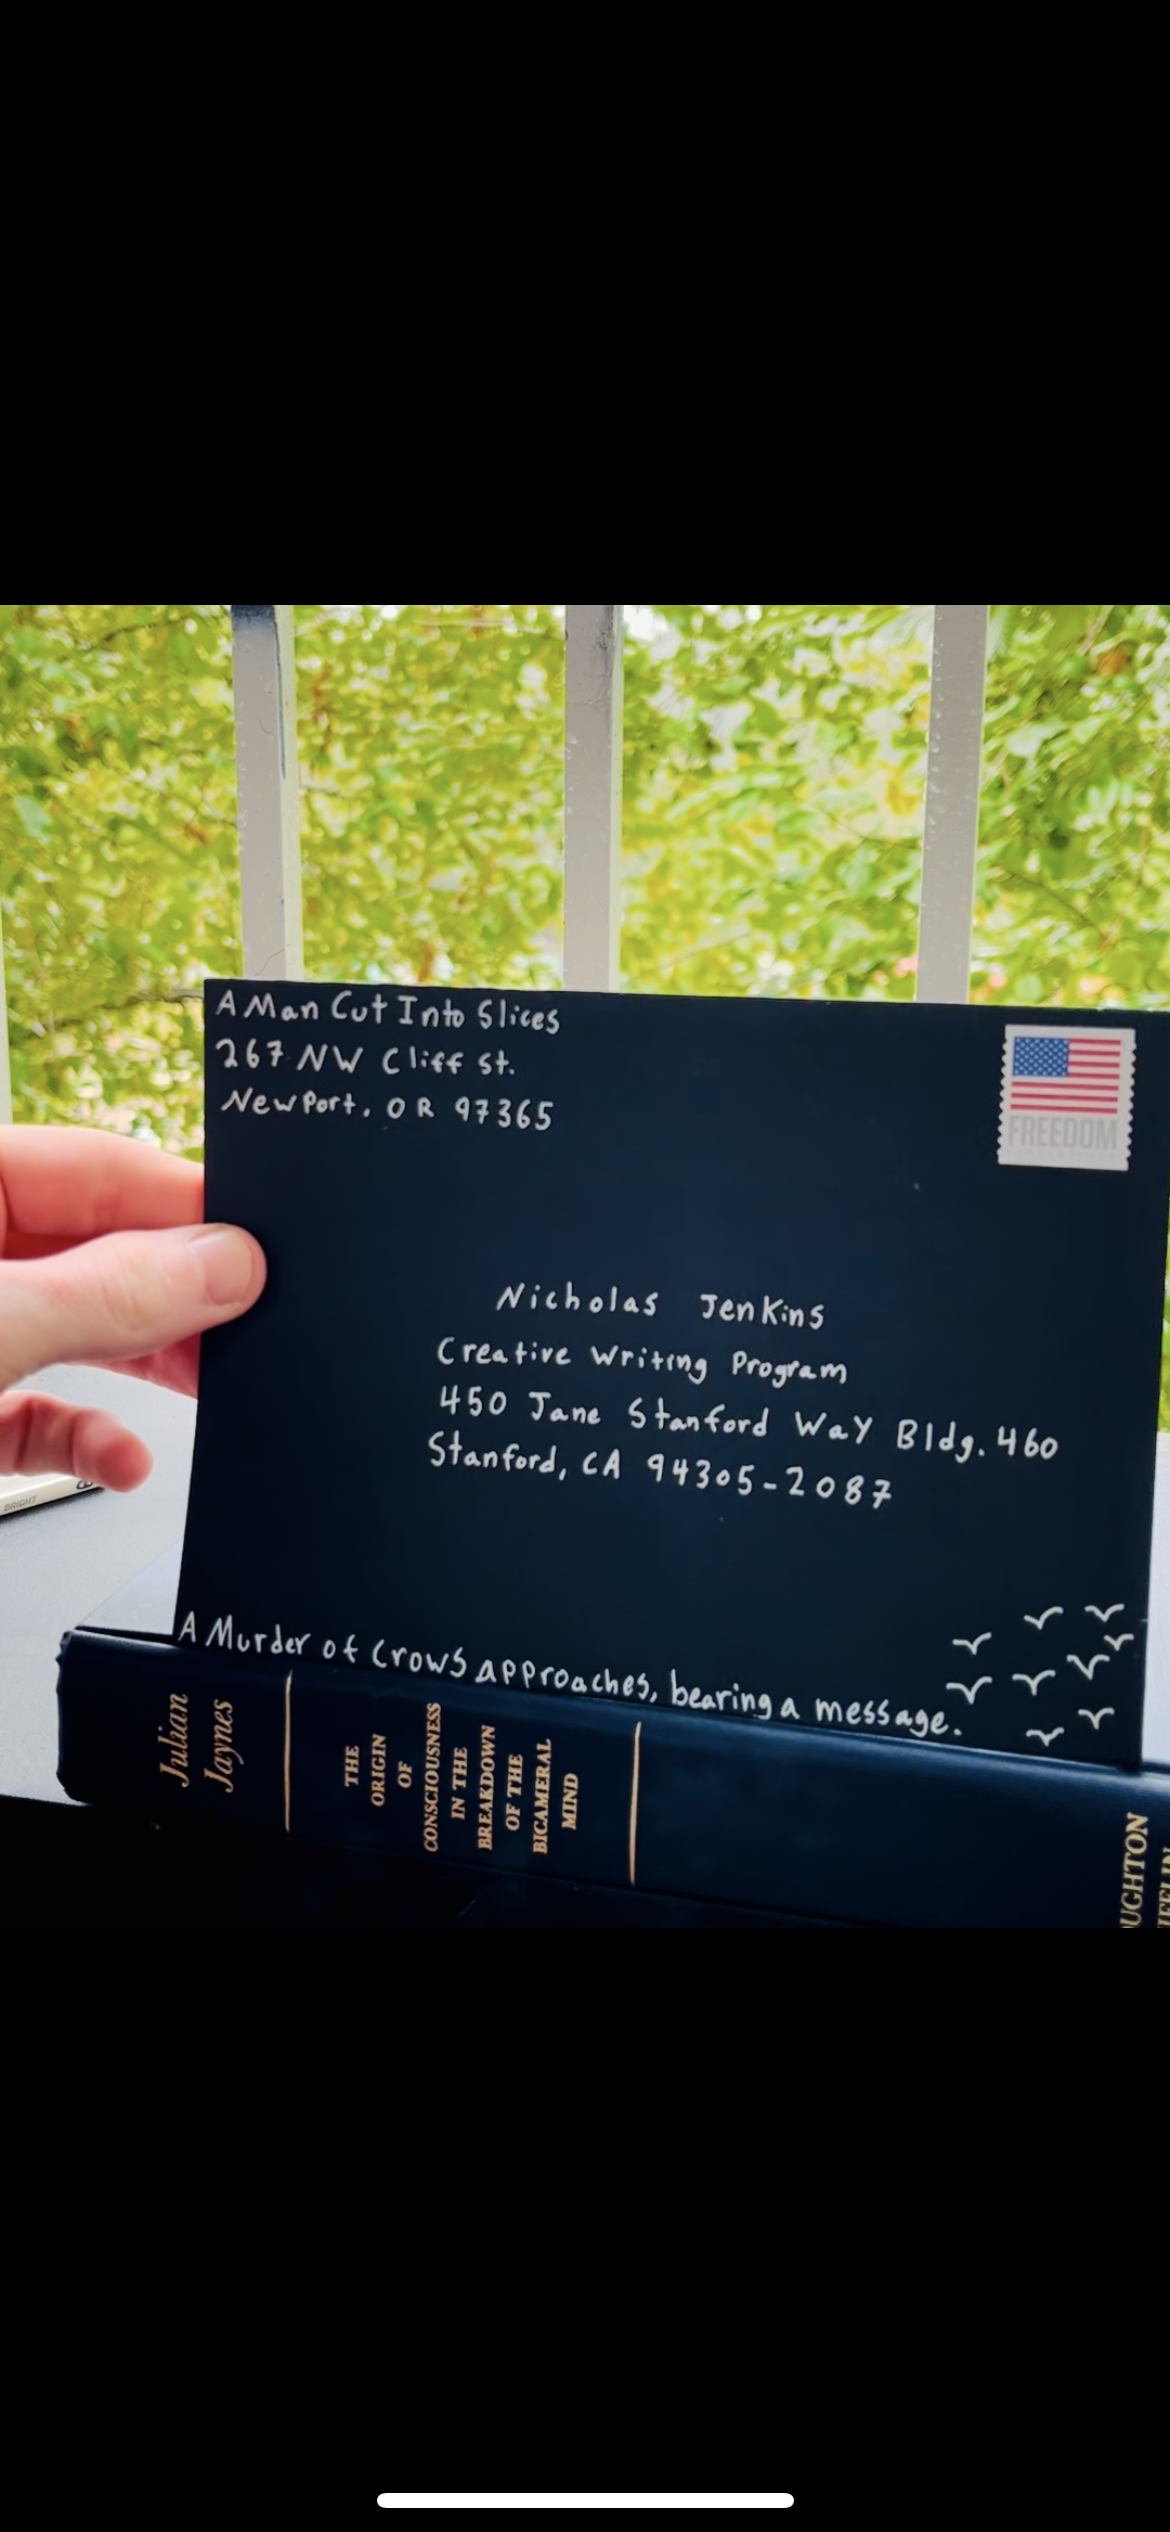 A Man Cut Into Slices
267 NW Cliff St.
NewPort, OR 97365
FREEDOM
Nicholas Jenkins
Creative Writing Program
450 Jane Stanford Way Bldg. 460
Stanford, CA 94305-2087
A Murder of Crows approaches, bearing a message.
BRIGHT
Julian
Jaynes
THE
ORIGIN
OF
CONSCIOUSNESS
IN THE
BREAKDOWN
OF THE
BICAMERAL
MIND
UGHTON